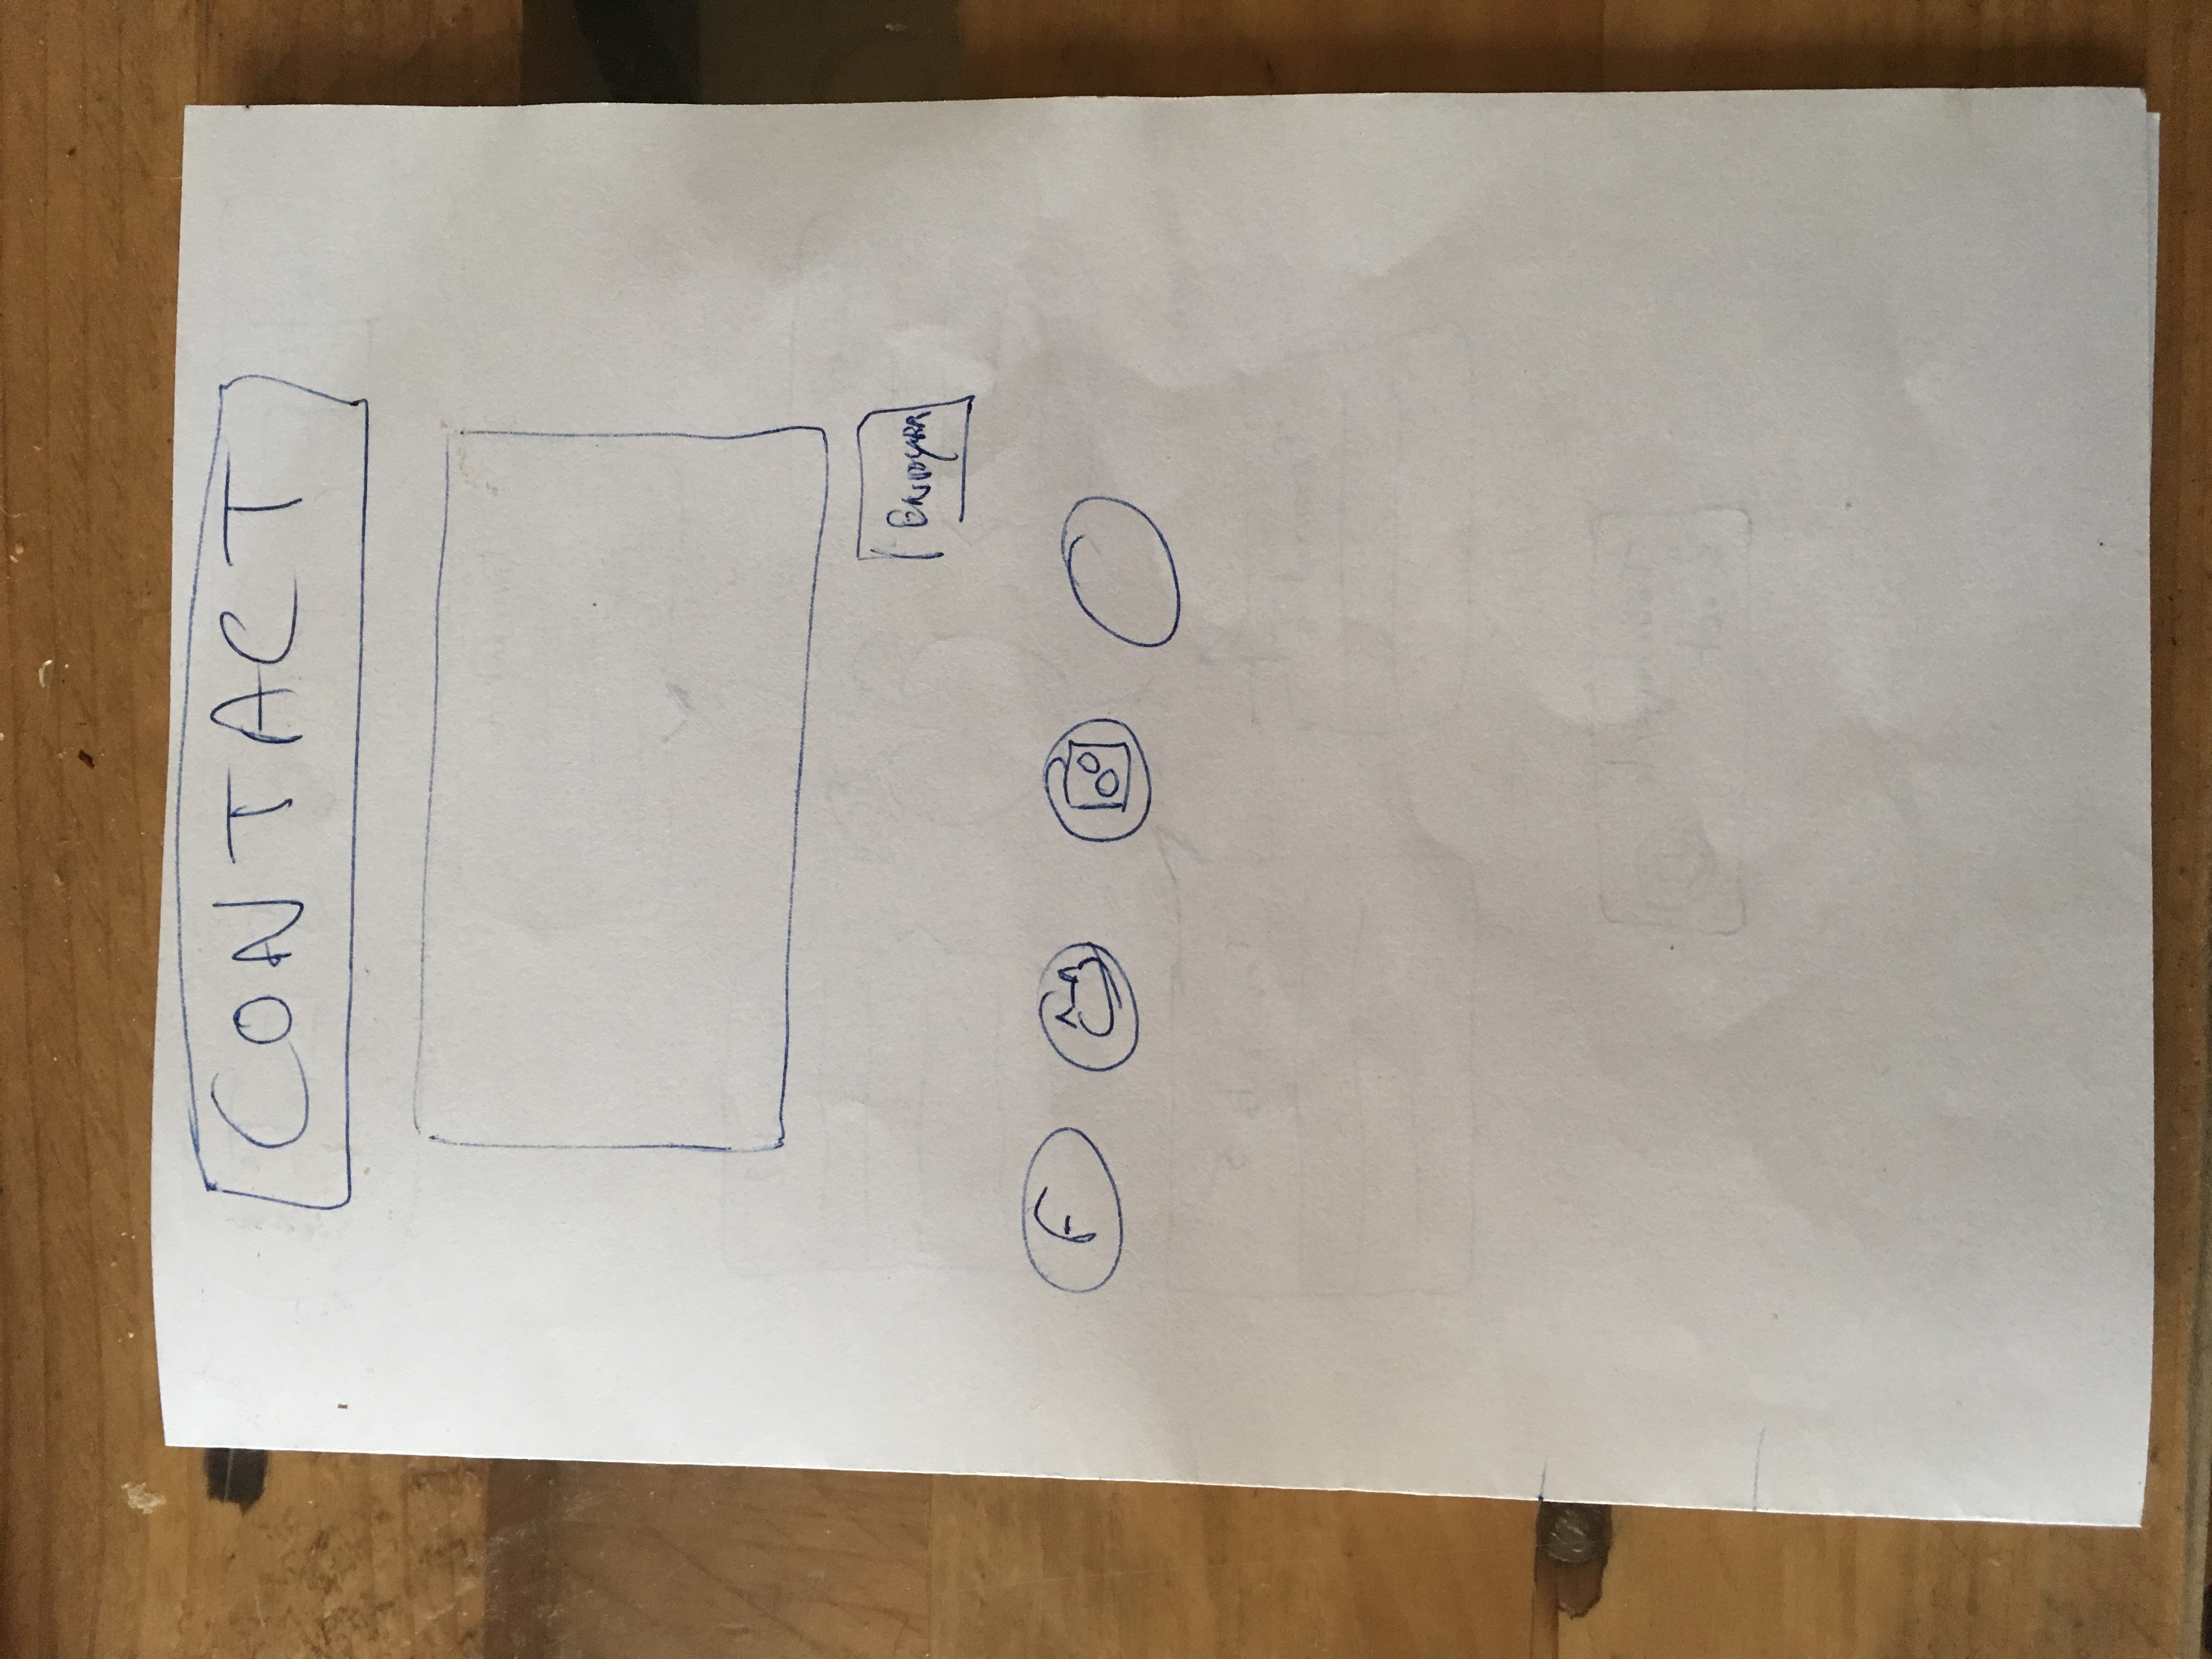 CONTACT
ENVOYER
F